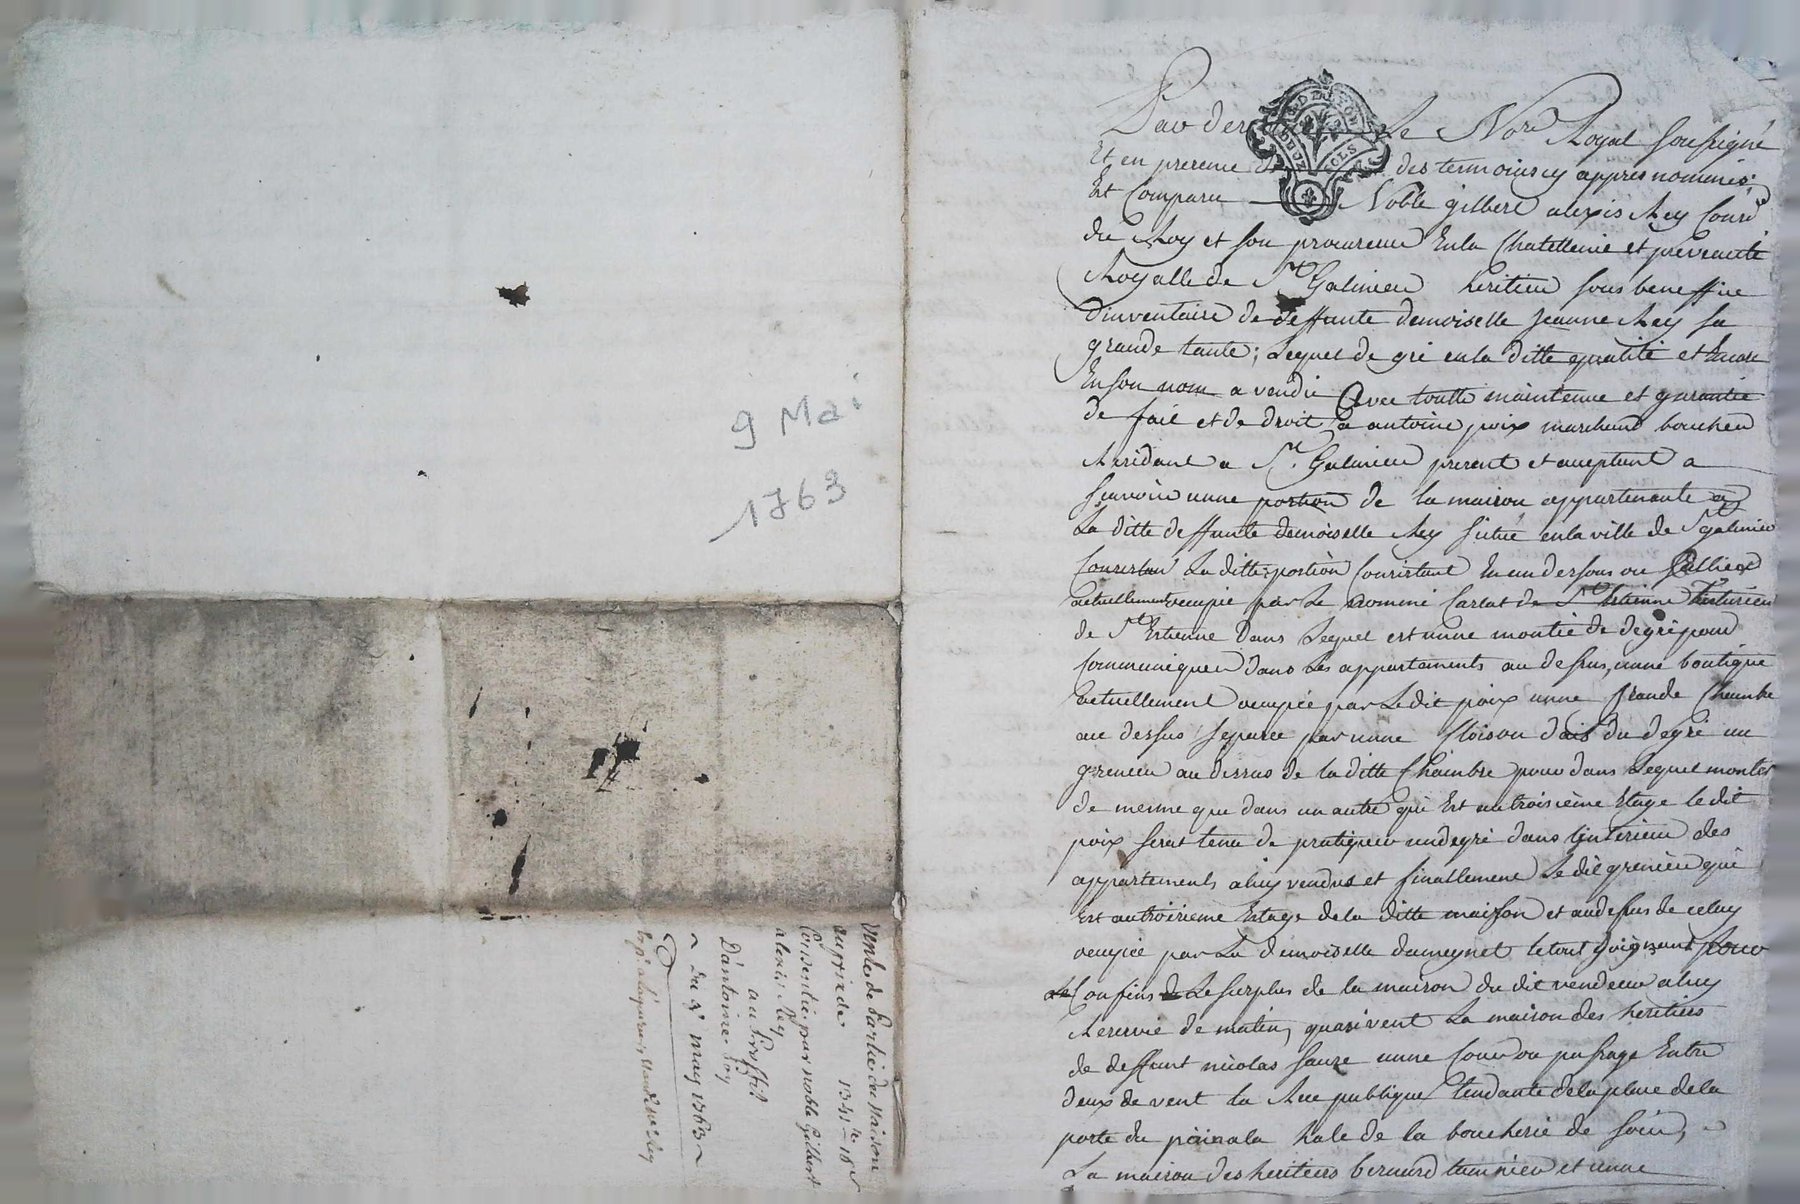 9 Mai
1763
Vente de partie de maison
au prix de 1341 lt 18 s
Consentie par noble Gilbert
alexis Rey
au proffit
D'antoine
Du 9e may 1763
Par der Le Nore Royal soussigné
Et en presence des temoins cy appres nommés
Est Comparu Noble gilbert alexis Rey Conser
du Roy et son procureur En la Chatellenie et prevauté
Royalle de St Galmier heritier sous beneffice
D'inventaire de deffunte demoiselle Jeanne Rey sa
grande tante; Lequel de gré en la ditte qualité et
En son nom a vendu avec toutte maintenue et garantie
de fait et de droit a antoine poix marchand boucher
Residant a St Galmier present et acceptant a
scavoir unne portion de la maison appartenante a
La ditte deffunte demoiselle Rey situé en la ville de St galmier
La ditte portion Consistant En un dessous ou
actuellement occupée par Le nommé Carlat de St Estienne
de St Estienne Dans Lequel est unne montée de degré pour
Communiquer dans Les appartements au dessus, unne boutique
actuellement occupée par Ledit poix unne grande Chambre
au dessus separée par unne Cloison dais du degré un
grenier au dessus de la ditte Chambre pour dans Lequel monter
de mesme que dans un autre qui Est au troisième Etage le dit
poix serat tenu de pratiquer un degré dans l'interieur des
appartements a luy vendus et finallement Le dit grenier qui
Est au troisieme Estage de la ditte maison et au dessus de celuy
occupée par La demoiselle dumeynet le tout joignant pour
Confins Le surplus de la maison du dit vendeur a luy
Reservée de matin, quasi vent La maison des heritiers
de deffunt nicolas faure unne Cour ou passage Entre
deux de vent la Rue publique tendante de la place de la
porte du a la hale de la boucherie de soir,
La maison des heritiers bernard et unne